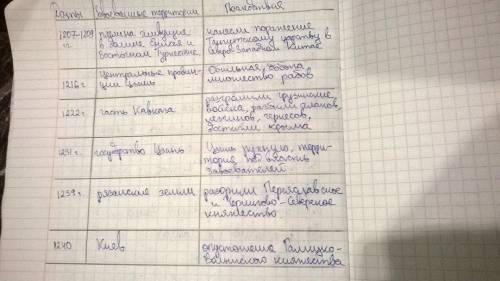 Даты Завоёванные территории Последствия
1207-1209 гг. племена живущие в долине Енисея и Восточном Туркестане
нанесли поражение Тангутскому царству в Северо Западном Китае
1216 г. Центральные провинции Цзинь
Обильная добыча множество рабов
1222 г. часть Кавказа
разгромили грузинские войска, разбили аланов, лезгинов, черкесов, достигли Крыма
1231 г. государство Цзинь
Цзинь рухнуло, территория под власть завоевателей
1239 г. рязанские земли
разорили Переяславское и Чернигово-Северское княжество.
1240 Киев
опустошена Галицко-Волынского княжества